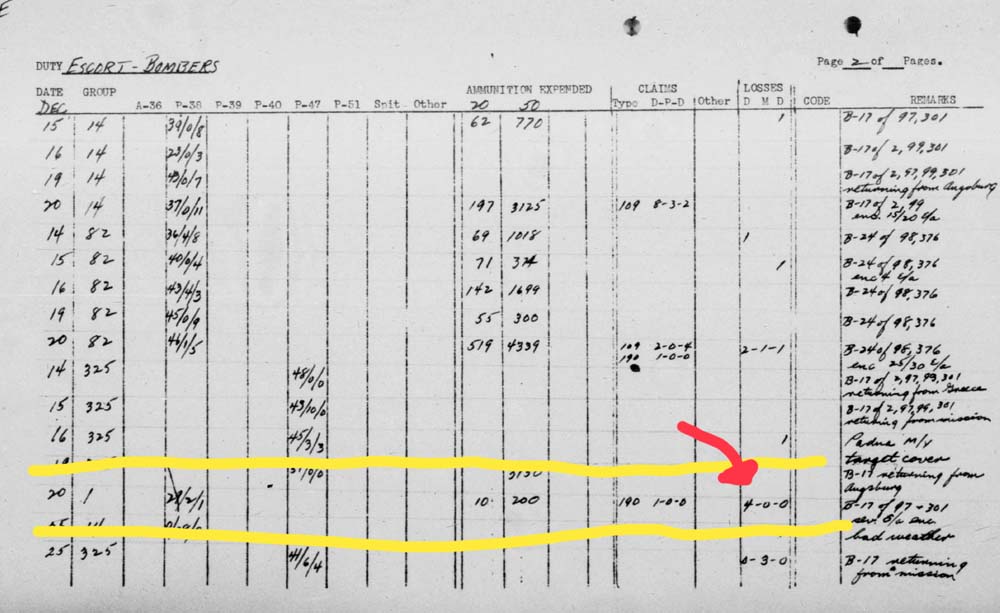 DUTY ESCORT - BOMBERS
Page 2 of Pages.
DATE GROUP AMMUNITION EXPENDED CLAIMS LOSSES
DEC. A-36 P-38 P-39 P-40 P-47 P-51 Spit. Other 20 50 Type D-P-D Other D M D CODE REMARKS
15 14 39/0/8 62 770 1 B-17 of 97,301
16 14 23/0/3 B-17 of 2,97,301
19 14 43/0/7 B-17 of 2,97,99,301
returning from Augsburg
20 14 37/0/11 197 3125 109 8-3-2 B-17 of 2,99
enc. 15/20 E/a
14 82 36/4/8 69 1018 1 B-24 of 98,376
15 82 40/0/4 71 1 B-24 of 98,376
enc 4 E/a
16 82 43/4/3 142 1699 B-24 of 98,376
19 82 45/0/9 55 300 B-24 of 98,376
20 82 46/1/5 519 4339 109 2-0-4 2-1-1 B-24 of 98,376
190 1-0-0 enc 25/30 E/a
14 325 48/0/0 B-17 of 2,97,99,301
returning from Greece
15 325 43/10/0 B-17 of 2,97,99,301
returning from mission
16 325 45/3/3 1 Padua M/Y
target cover
B-17 returning from
Augsburg
20 1 28/2/1 10 200 190 1-0-0 4-0-0 B-17 of 97 + 301
sev. E/a enc
bad weather
25 325 41/6/4 0-3-0 B-17 returning
from mission